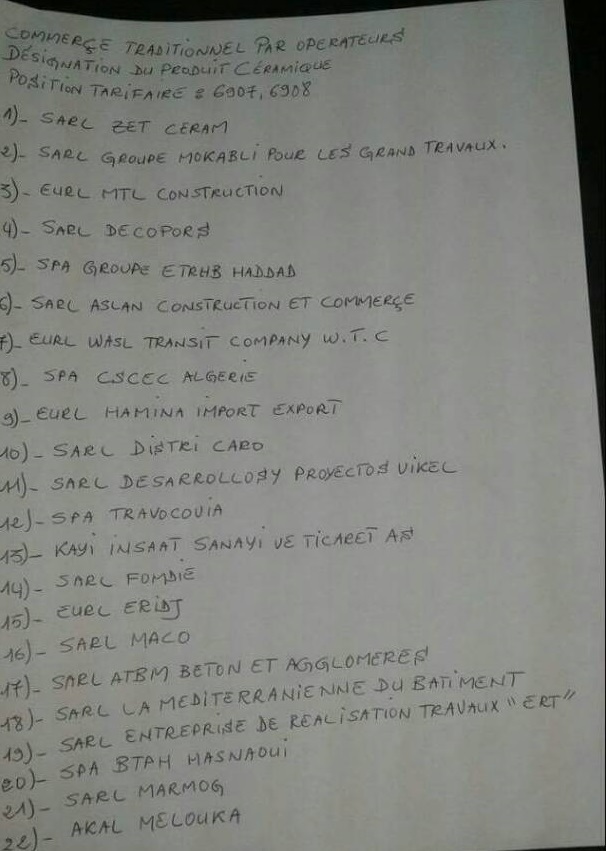 COMMERÇE TRADITIONNEL PAR OPERATEURS
DÉSIGNATION DU PRODUIT CÉRAMIQUE
POSITION TARIFAIRE : 6907, 6908
1)- SARL ZET CERAM
2)- SARL GROUPE MOKABLI POUR LES GRAND TRAVAUX.
3)- EURL MTL CONSTRUCTION
4)- SARL DECOPORS
5)- SPA GROUPE ETRHB HADDAD
6)- SARL ASLAN CONSTRUCTION ET COMMERÇE
7)- EURL WASL TRANSIT COMPANY W.T.C
8)- SPA CSCEC ALGERIE
9)- EURL HAMINA IMPORT EXPORT
10)- SARL DISTRI CARO
11)- SARL DESARROLLOSY PROYECTOS VIKEL
12)- SPA TRAVOCOVIA
13)- KAYI INSAAT SANAYI VE TICARET AS
14)- SARL FOMDIE
15)- EURL ERIDJ
16)- SARL MACO
17)- SARL ATBM BETON ET AGGLOMERES
18)- SARL LA MEDITERRANIENNE DU BATIMENT
19)- SARL ENTREPRISE DE REALISATION TRAVAUX "ERT"
20)- SPA BTPH HASNAOUI
21)- SARL MARMOG
22)- AKAL MELOUKA